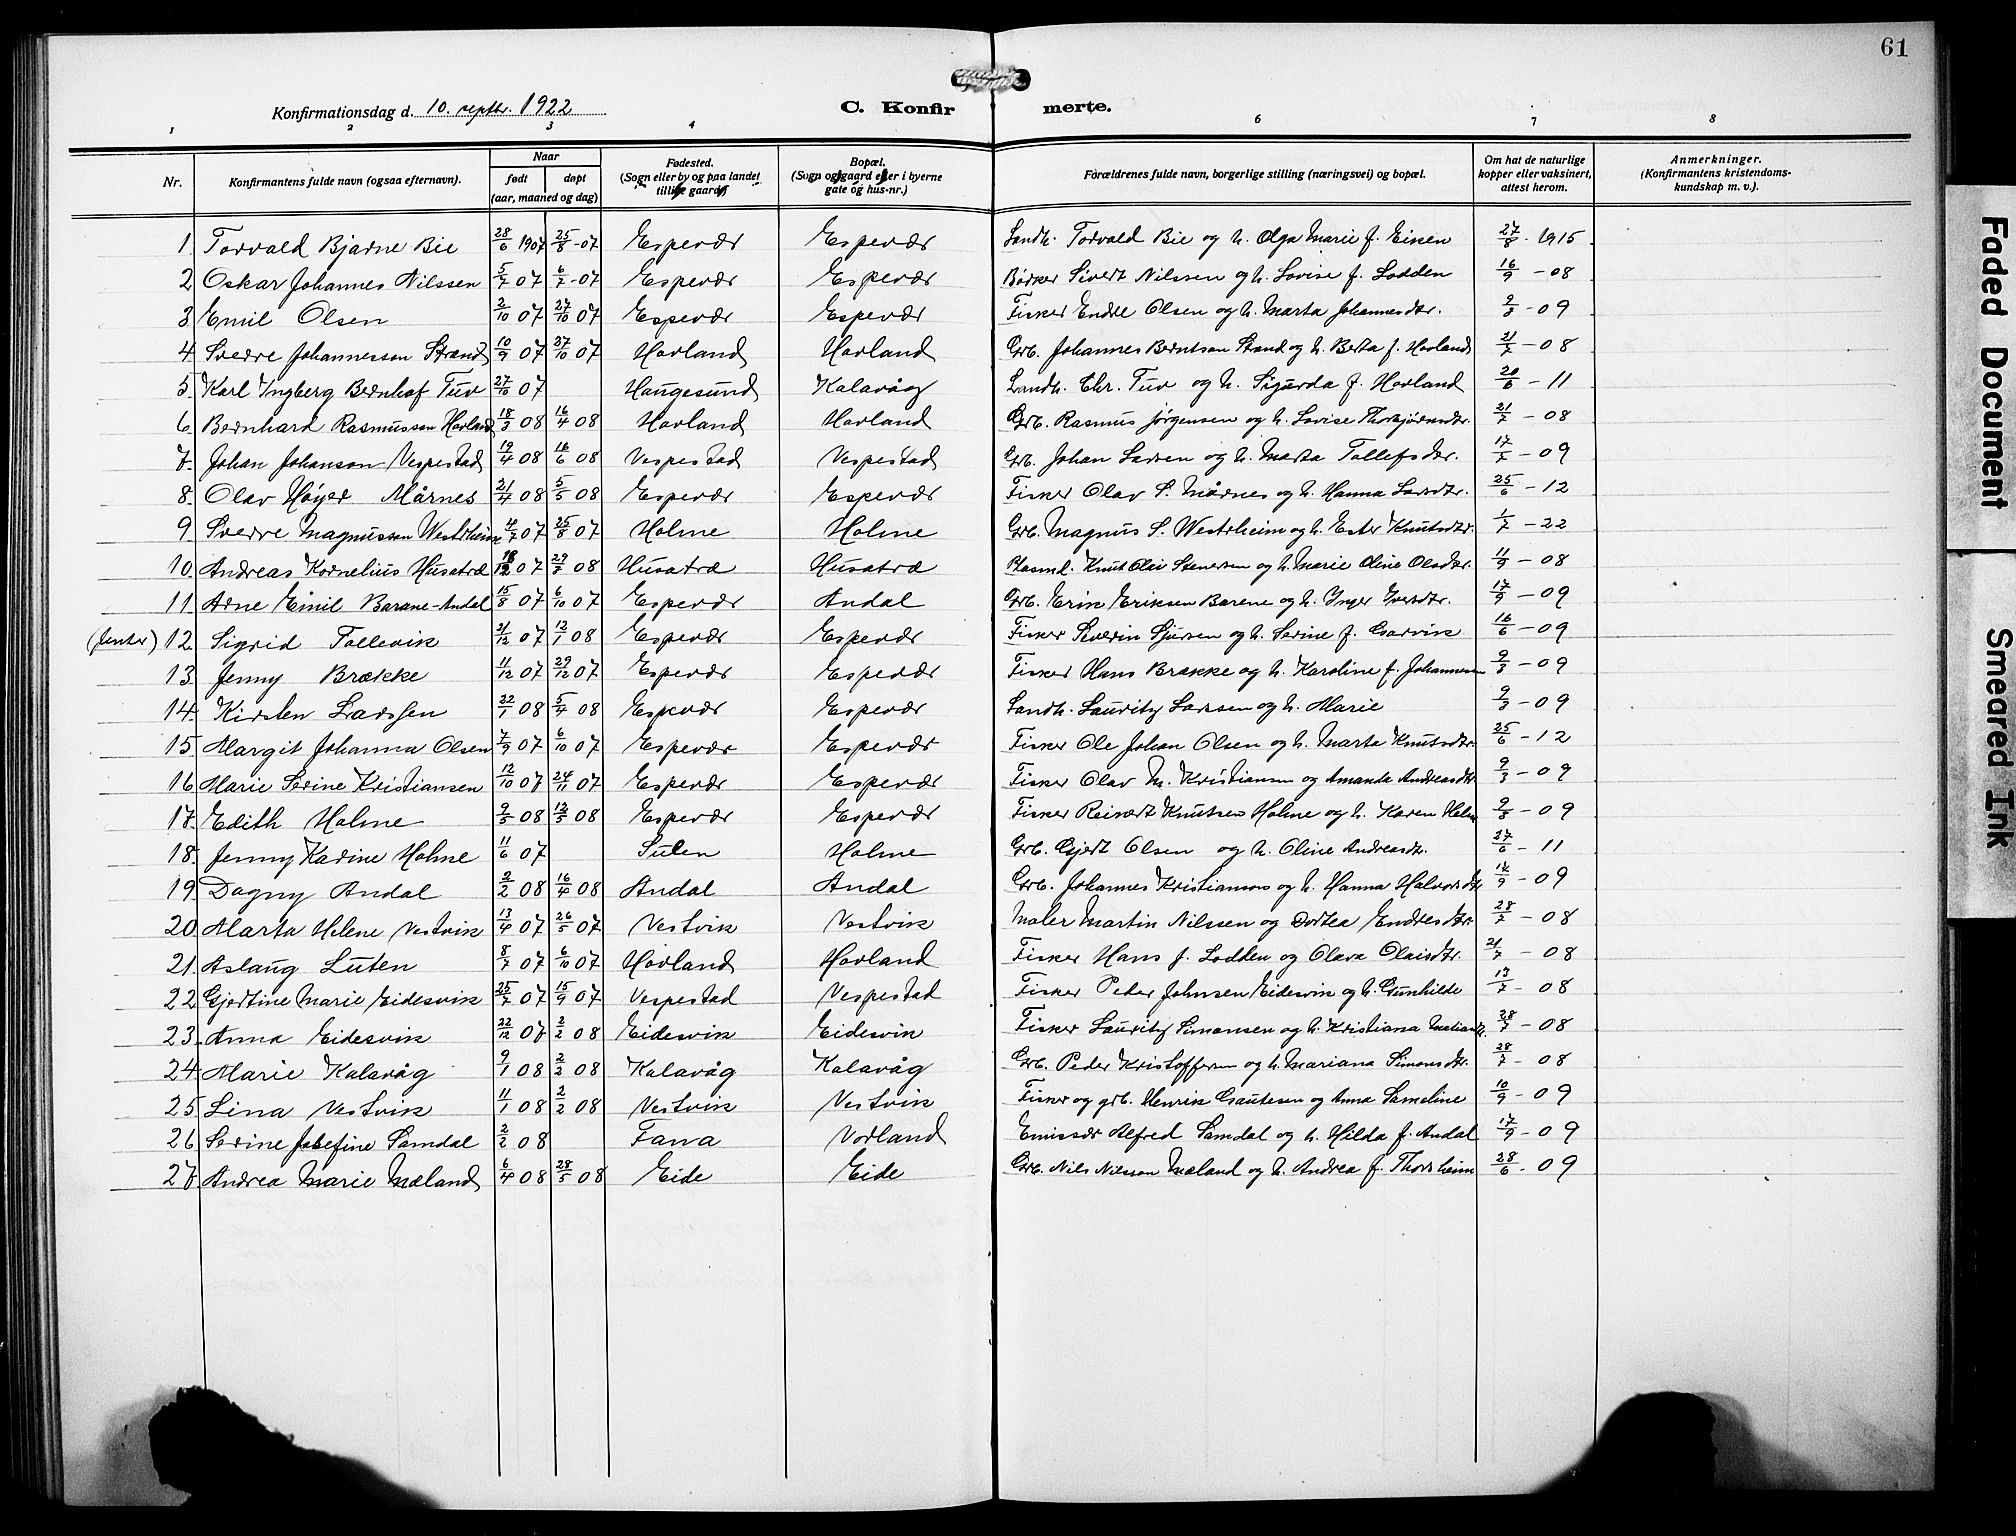 61
Konfirmationsdag d. 10. septbr. 1922
C. Konfirmerte.
1 2 3 4 5 6 7 8
Nr. | Konfirmantens fulde navn (ogsaa efternavn). | Naar født | døpt (aar, maaned og dag) | Fødested. (Sogn eller by og paa landet tillike gaard) | Bopæl. (Sogn og gaard eller i byerne gate og hus-nr.) | Forældrenes fulde navn, borgerlige stilling (næringsvei) og bopæl. | Om hat de naturlige kopper eller vaksinert, attest herom. | Anmerkninger. (Konfirmantens kristendoms-kundskap m. v.).
1. Torvald Bjarne Bie 28/6 1907 25/8-07 Espevær Espevær Landh. Torvald Bie og h. Olga Marie f. Eisen 27/8-1915
2. Oskar Johannes Nilssen 5/7 07 6/7-07 Espevær Espevær Bøtker Sivert Nilssen og h. Lovise f. Lodden 16/9-08
3. Emil Olsen 2/10 07 27/10 07 Espevær Espevær Fisker Endre Olsen og h. Marta Johannesdtr. 9/3-09
4. Sverre Johannesson Strand 10/9 07 27/10 07 Hovland Hovland Grb. Johannes Berntson Strand og h. Berta f. Hovland 21/7-08
5. Karl Yngberg Bernhof Tuv 27/10 07 Haugesund Kalavåg Landh. Chr. Tuv og h. Sigurda f. Hovland 20/6-11
6. Bernhard Rasmusson Hovland 18/3 08 16/4 08 Hovland Hovland Grb. Rasmus Jørgensen og h. Lovise Thorbjørnsdtr. 21/7-08
7. Johan Johanson Vespestad 19/4 08 16/6 08 Vespestad Vespestad Grb. Johan Larsen og h. Marta Tollefsdtr. 17/7-09
8. Olav Høyer Mårnes 21/4 08 5/5 08 Espevær Espevær Fisker Olav S. Mårnes og h. Hanna Larsdtr. 25/6-12
9. Sverre Magnusson Westrheim 4/7 07 25/8 07 Holme Holme Grb. Magnus S. Westrheim og h. Ester Knutsdtr. 1/7-22
10. Andreas Kornelius Husatræ 18/12 07 29/3 08 Husatræ Husatræ Plasmd. Knut Olai Stenersen og h. Marie Oline Olsdtr. 11/9-08
11. Arne Emil Barane-Andal 15/8 07 6/10 07 Espevær Andal Grb. Erik Eriksen Barene og h. Inger Iversdtr. 17/9-09
(Jenter) 12. Sigrid Tollevik 21/12 07 12/1 08 Espevær Espevær Fisker Severin Sjursen og h. Serine f. Garvik 16/6-09
13. Jenny Brække 11/12 07 29/12 07 Espevær Espevær Fisker Hans Brække og h. Karoline f. Johannesen 9/3-09
14. Kirsten Larssen 22/1 08 5/4 08 Espevær Espevær Landh. Lauritz Larssen og h. Marie 9/3-09
15. Margit Johanna Olsen 7/9 07 6/10 07 Espevær Espevær Fisker Ole Johan Olsen og h. Marta Knutsdtr. 25/6-12
16. Marie Serine Kristiansen 12/10 07 24/11 07 Espevær Espevær Fisker Olav M. Kristiansen og Amanda Andreasdtr. 9/3-09
17. Edith Holme 9/3 08 12/5 08 Espevær Espevær Fisker Reinert Knutsen Holme og h. Karen Helene 9/3-09
18. Jenny Karine Holme 11/6 07 Sulen Holme Grb. Gjert Olsen og h. Oline Andreasdtr. 27/6-11
19. Dagny Andal 2/2 08 16/4 08 Andal Andal Grb. Johannes Kristianson og h. Hanna Halvorsdtr. 17/9-09
20. Marta Helene Vestvik 13/4 07 26/5 07 Vestvik Vestvik Maler Martin Nilssen og Dortea Endresdtr. 28/7-08
21. Aslaug Luten 8/7 07 6/10 07 Hovland Hovland Fisker Hans J. Lodden og Olava Olaisdtr. 21/7-08
22. Gjertine Marie Eidesvik 25/7 07 15/9 07 Vespestad Vespestad Fisker Peder Johnsen Eidesvik og h. Gunhilde 17/7-08
23. Anna Eidesvik 22/12 07 2/2 08 Eidesvik Eidesvik Fisker Lauritz Simonsen og h. Kristiana 28/7-08
24. Marie Kalavåg 9/1 08 2/2 08 Kalavåg Kalavåg Grb. Peder Kristoffersen og h. Mariana Simonsdtr. 28/7-08
25. Lina Vestvik 11/1 08 2/2 08 Vestvik Vestvik Fisker og grb. Henrik Gautesen og Anna Sameline 10/9-09
26. Serine Josefine Samdal 2/2 08 Fana Vorland Emissær Alfred Samdal og h. Hilda f. Andal 17/9-09
27. Andrea Marie Mæland 6/4 08 28/5 08 Eide Eide Grb. Nils Nilsson Mæland og h. Andrea f. Thorsheim 28/6-09
Faded Document
Smeared Ink